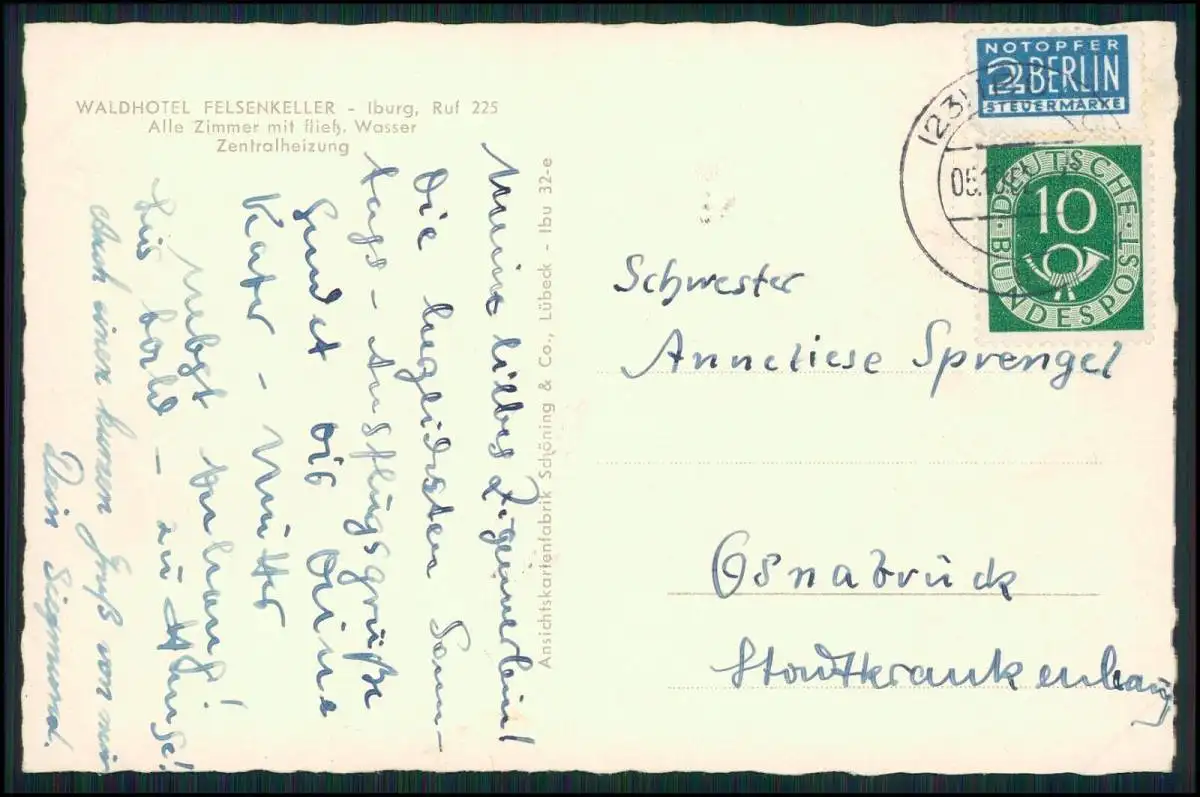 WALDHOTEL FELSENKELLER - Iburg, Ruf 225
Alle Zimmer mit fließ. Wasser
Zentralheizung
Meine liebes Zigeunerlein!
Die
Sonn-
tags-Ausflugsgrüße
sendet dir Deine
Kater-Mutter
Nebst Anhang!
Bis bald - zu Hause!
Auch einen kurzen Gruß von mir
Dein Sigmund.
Ansichtskartenfabrik Schöning & Co., Lübeck - Ibu 32-e
NOTOPFER
2 BERLIN
STEUERMARKE
(23)
05.
DEUTSCHE
10
BUNDESPOST
Schwester
Anneliese Sprengel
Osnabrück
Stadtkrankenhaus